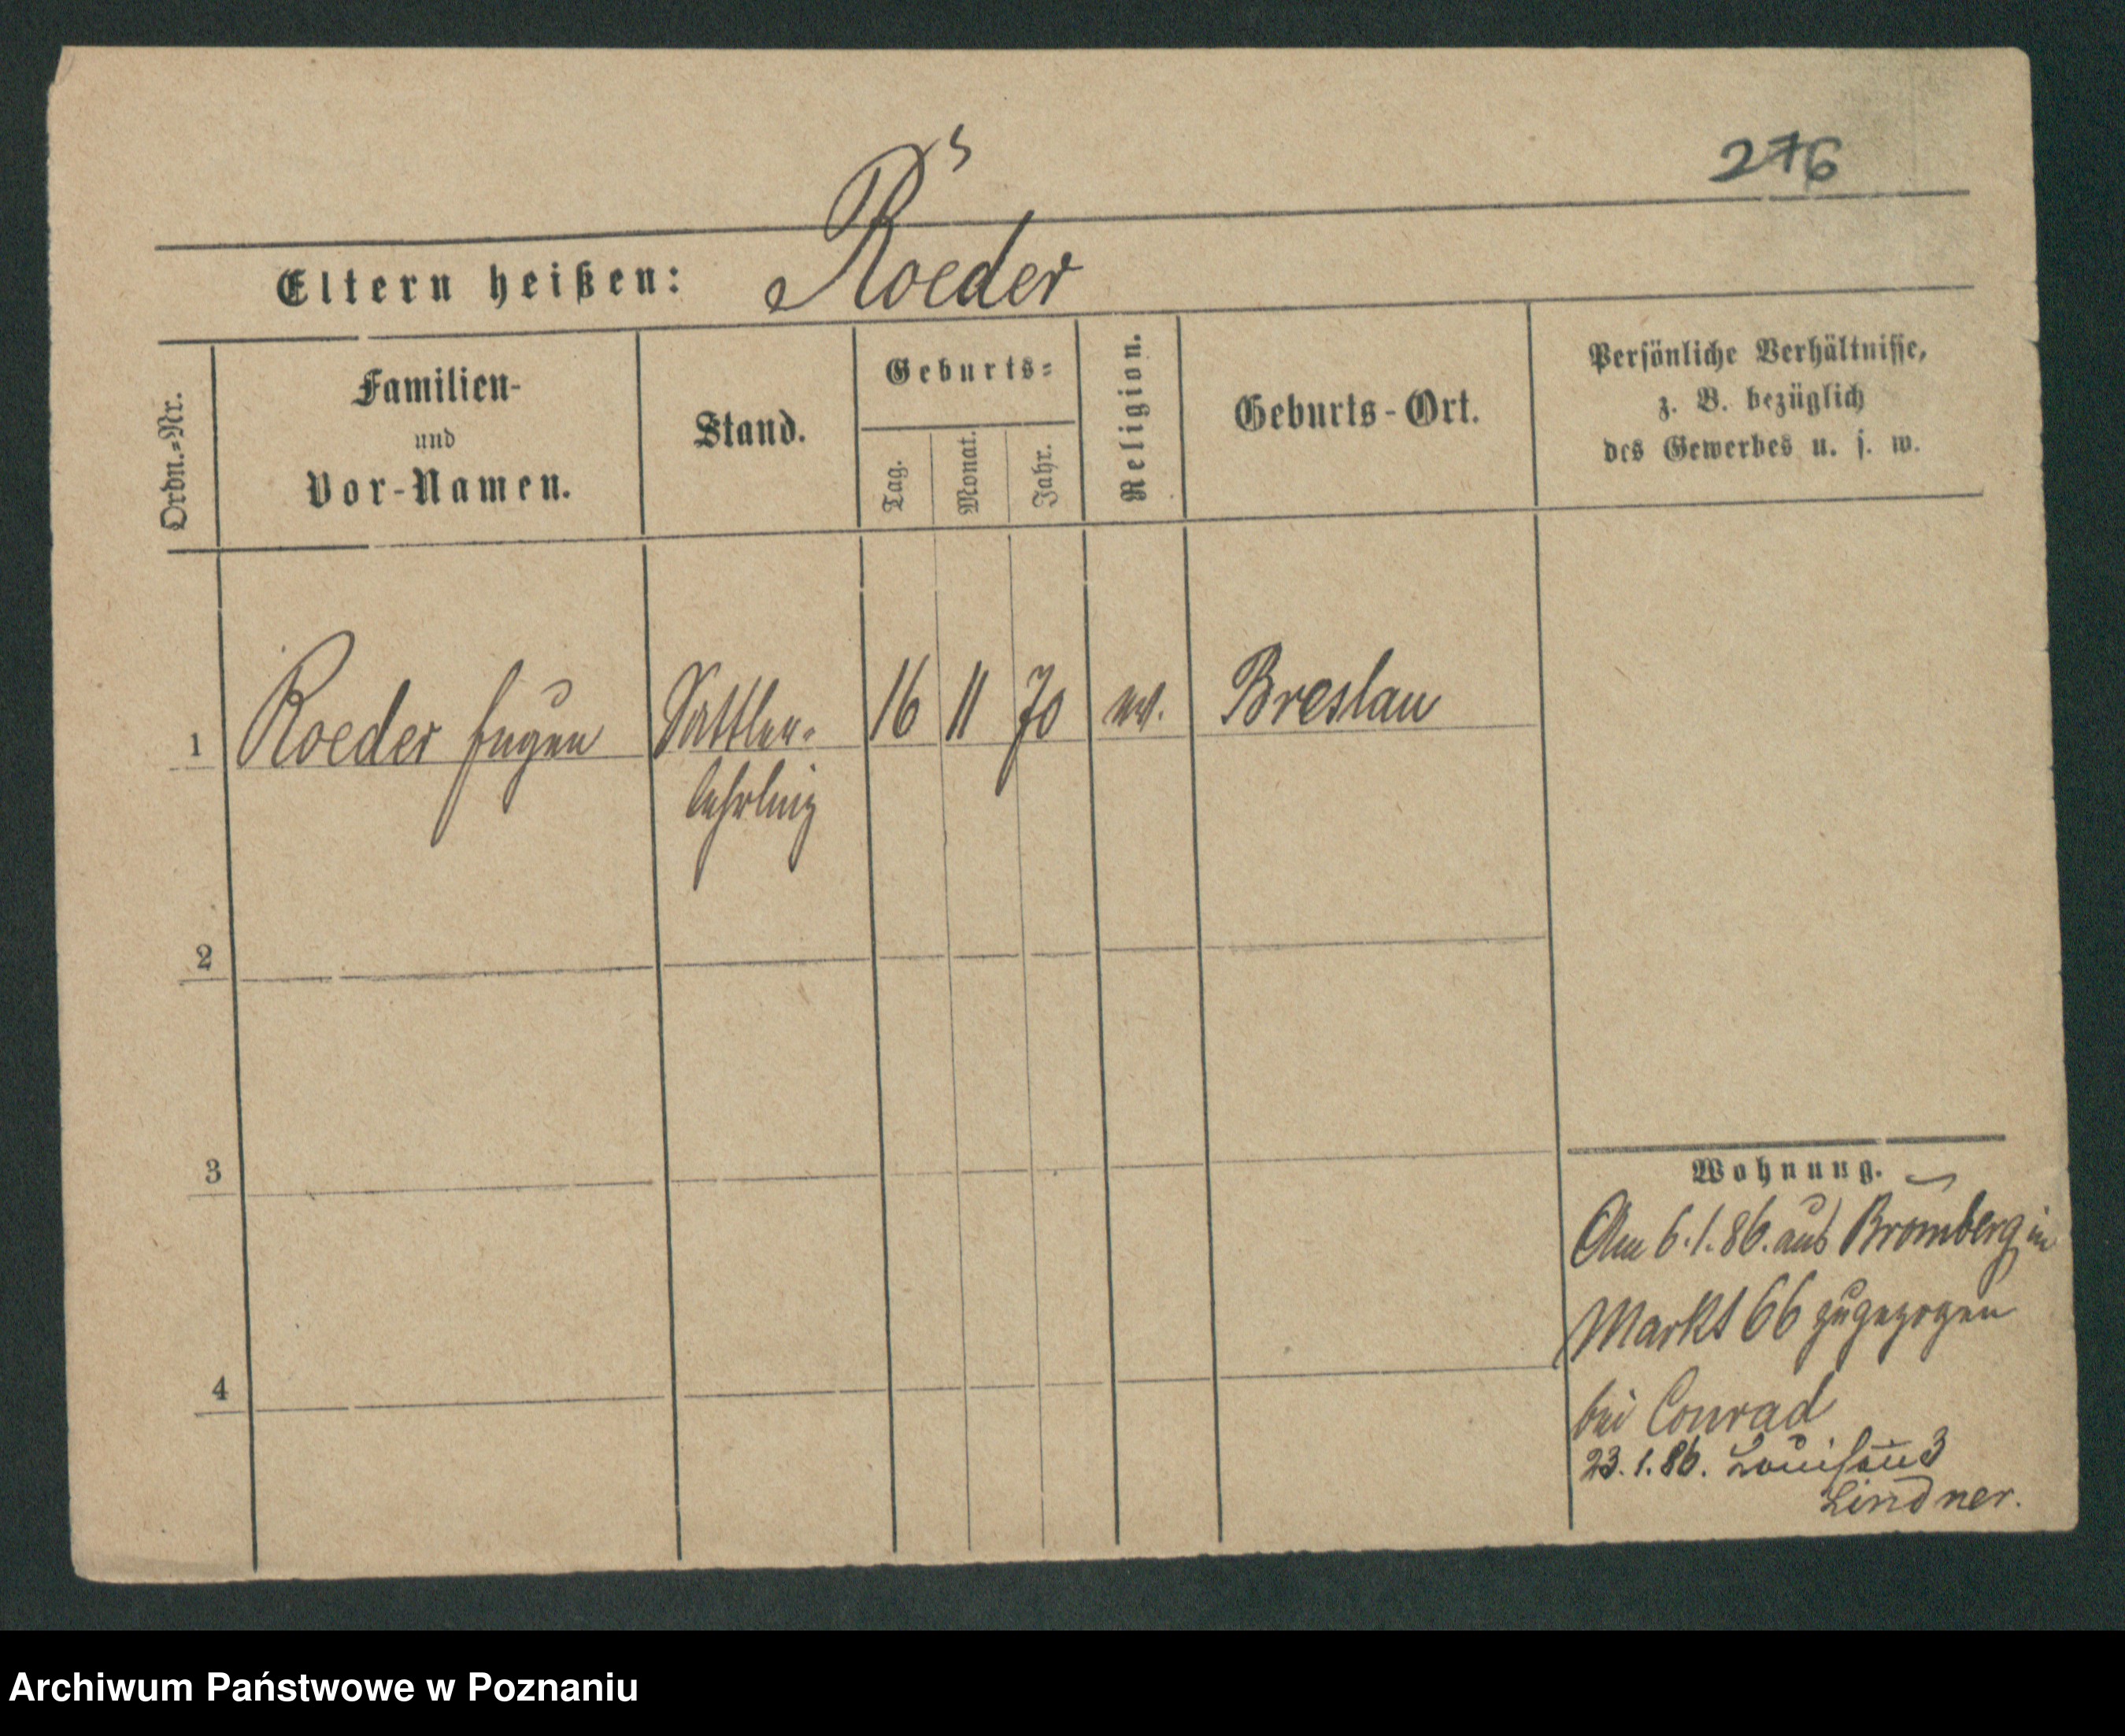 276
Eltern heißen: Roeder
Ordn.-Nr.
Familien-
und
Vor-Namen.
Stand.
Geburts-
Tag.
Monat.
Jahr.
Religion.
Geburts-Ort.
Persönliche Verhältnisse,
z. B. bezüglich
des Gewerbes u. s. w.
1 Roeder Eugen Sattler- 16 11 70 ev. Breslau
lehrling
2
3
4
Wohnung.
Am 6.1.86. aus Bromberg in
Markt 66 zugezogen
bei Conrad
23.1.86. Louisens 3
Lindner.
Archiwum Państwowe w Poznaniu